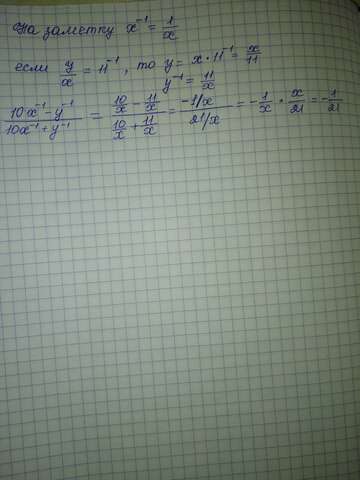 На заметку x⁻¹ = 1/x
если y/x = 11⁻¹, то y = x · 11⁻¹ = x/11
y⁻¹ = 11/x
(10x⁻¹ - y⁻¹)/(10x⁻¹ + y⁻¹) = (10/x - 11/x)/(10/x + 11/x) = (-1/x)/(21/x) = -1/x · x/21 = -1/21